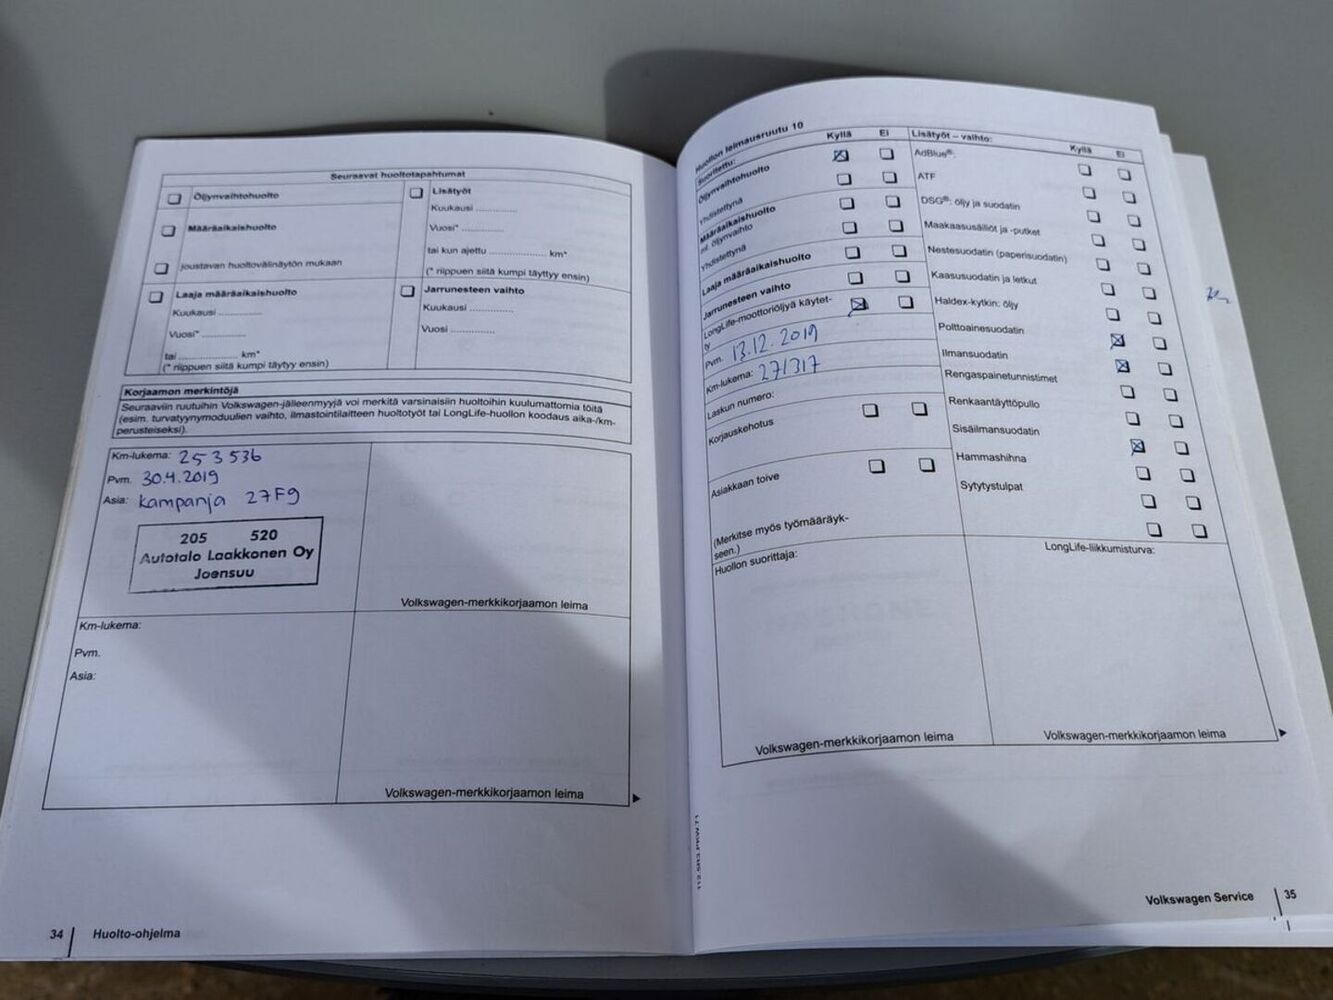 Seuraavat huoltotapahtumat
Öljynvaihtohuolto
Määräaikaishuolto
joustavan huoltovälinäytön mukaan
Lisätyöt
Kuukausi ..............
Vuosi* ..............
tai kun ajettu .................... km*
(* riippuen siitä kumpi täyttyy ensin)
Laaja määräaikaishuolto
Kuukausi ...............
Vuosi* ...............
tai .................... km*
(* riippuen siitä kumpi täytyy ensin)
Jarrunesteen vaihto
Kuukausi ...............
Vuosi ...............
Korjaamon merkintöjä
Seuraaviin ruutuihin Volkswagen-jälleenmyyjä voi merkitä varsinaisiin huoltoihin kuulumattomia töitä
(esim. turvatyynymoduulien vaihto, ilmastointilaitteen huoltotyöt tai LongLife-huollon koodaus aika-/km-
perusteiseksi).
Km-lukema: 253 536
Pvm. 30.4.2019
Asia: kampanja 27F9
205 520
Autotalo Laakkonen Oy
Joensuu
Volkswagen-merkkikorjaamon leima
Km-lukema:
Pvm.
Asia:
Volkswagen-merkkikorjaamon leima
34 Huolto-ohjelma
Huollon leimausruutu 10
Suoritettu: Kyllä Ei
Öljynvaihtohuolto
Yhdistettynä
Määräaikaishuolto
ml. öljynvaihto
Yhdistettynä
Laaja määräaikaishuolto
Jarrunesteen vaihto
LongLife-moottoriöljyä käytet-
ty
Pvm. 13.12.2019
Km-lukema: 271317
Laskun numero:
Korjauskehotus
Asiakkaan toive
(Merkitse myös työmääräyk-
seen.)
Huollon suorittaja:
Volkswagen-merkkikorjaamon leima
Lisätyöt – vaihto: Kyllä Ei
AdBlue®:
ATF
DSG®: öljy ja suodatin
Maakaasusäiliöt ja -putket
Nestesuodatin (paperisuodatin)
Kaasusuodatin ja letkut
Haldex-kytkin: öljy
Polttoainesuodatin
Ilmansuodatin
Rengaspainetunnistimet
Renkaantäyttöpullo
Sisäilmansuodatin
Hammashihna
Sytytystulpat
LongLife-liikkumisturva:
Volkswagen-merkkikorjaamon leima
112.5R3.PKW.71
Volkswagen Service 35